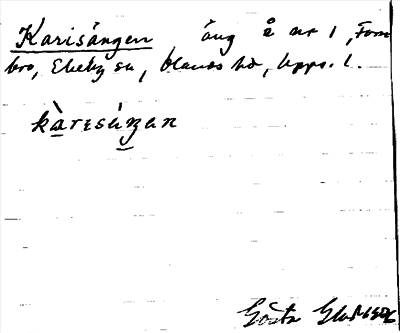 Karisängen äng å nr 1, Fom
bro, Skeby sn, Olands hd, Upps. l.
kàrɪsáŋan
Gösta